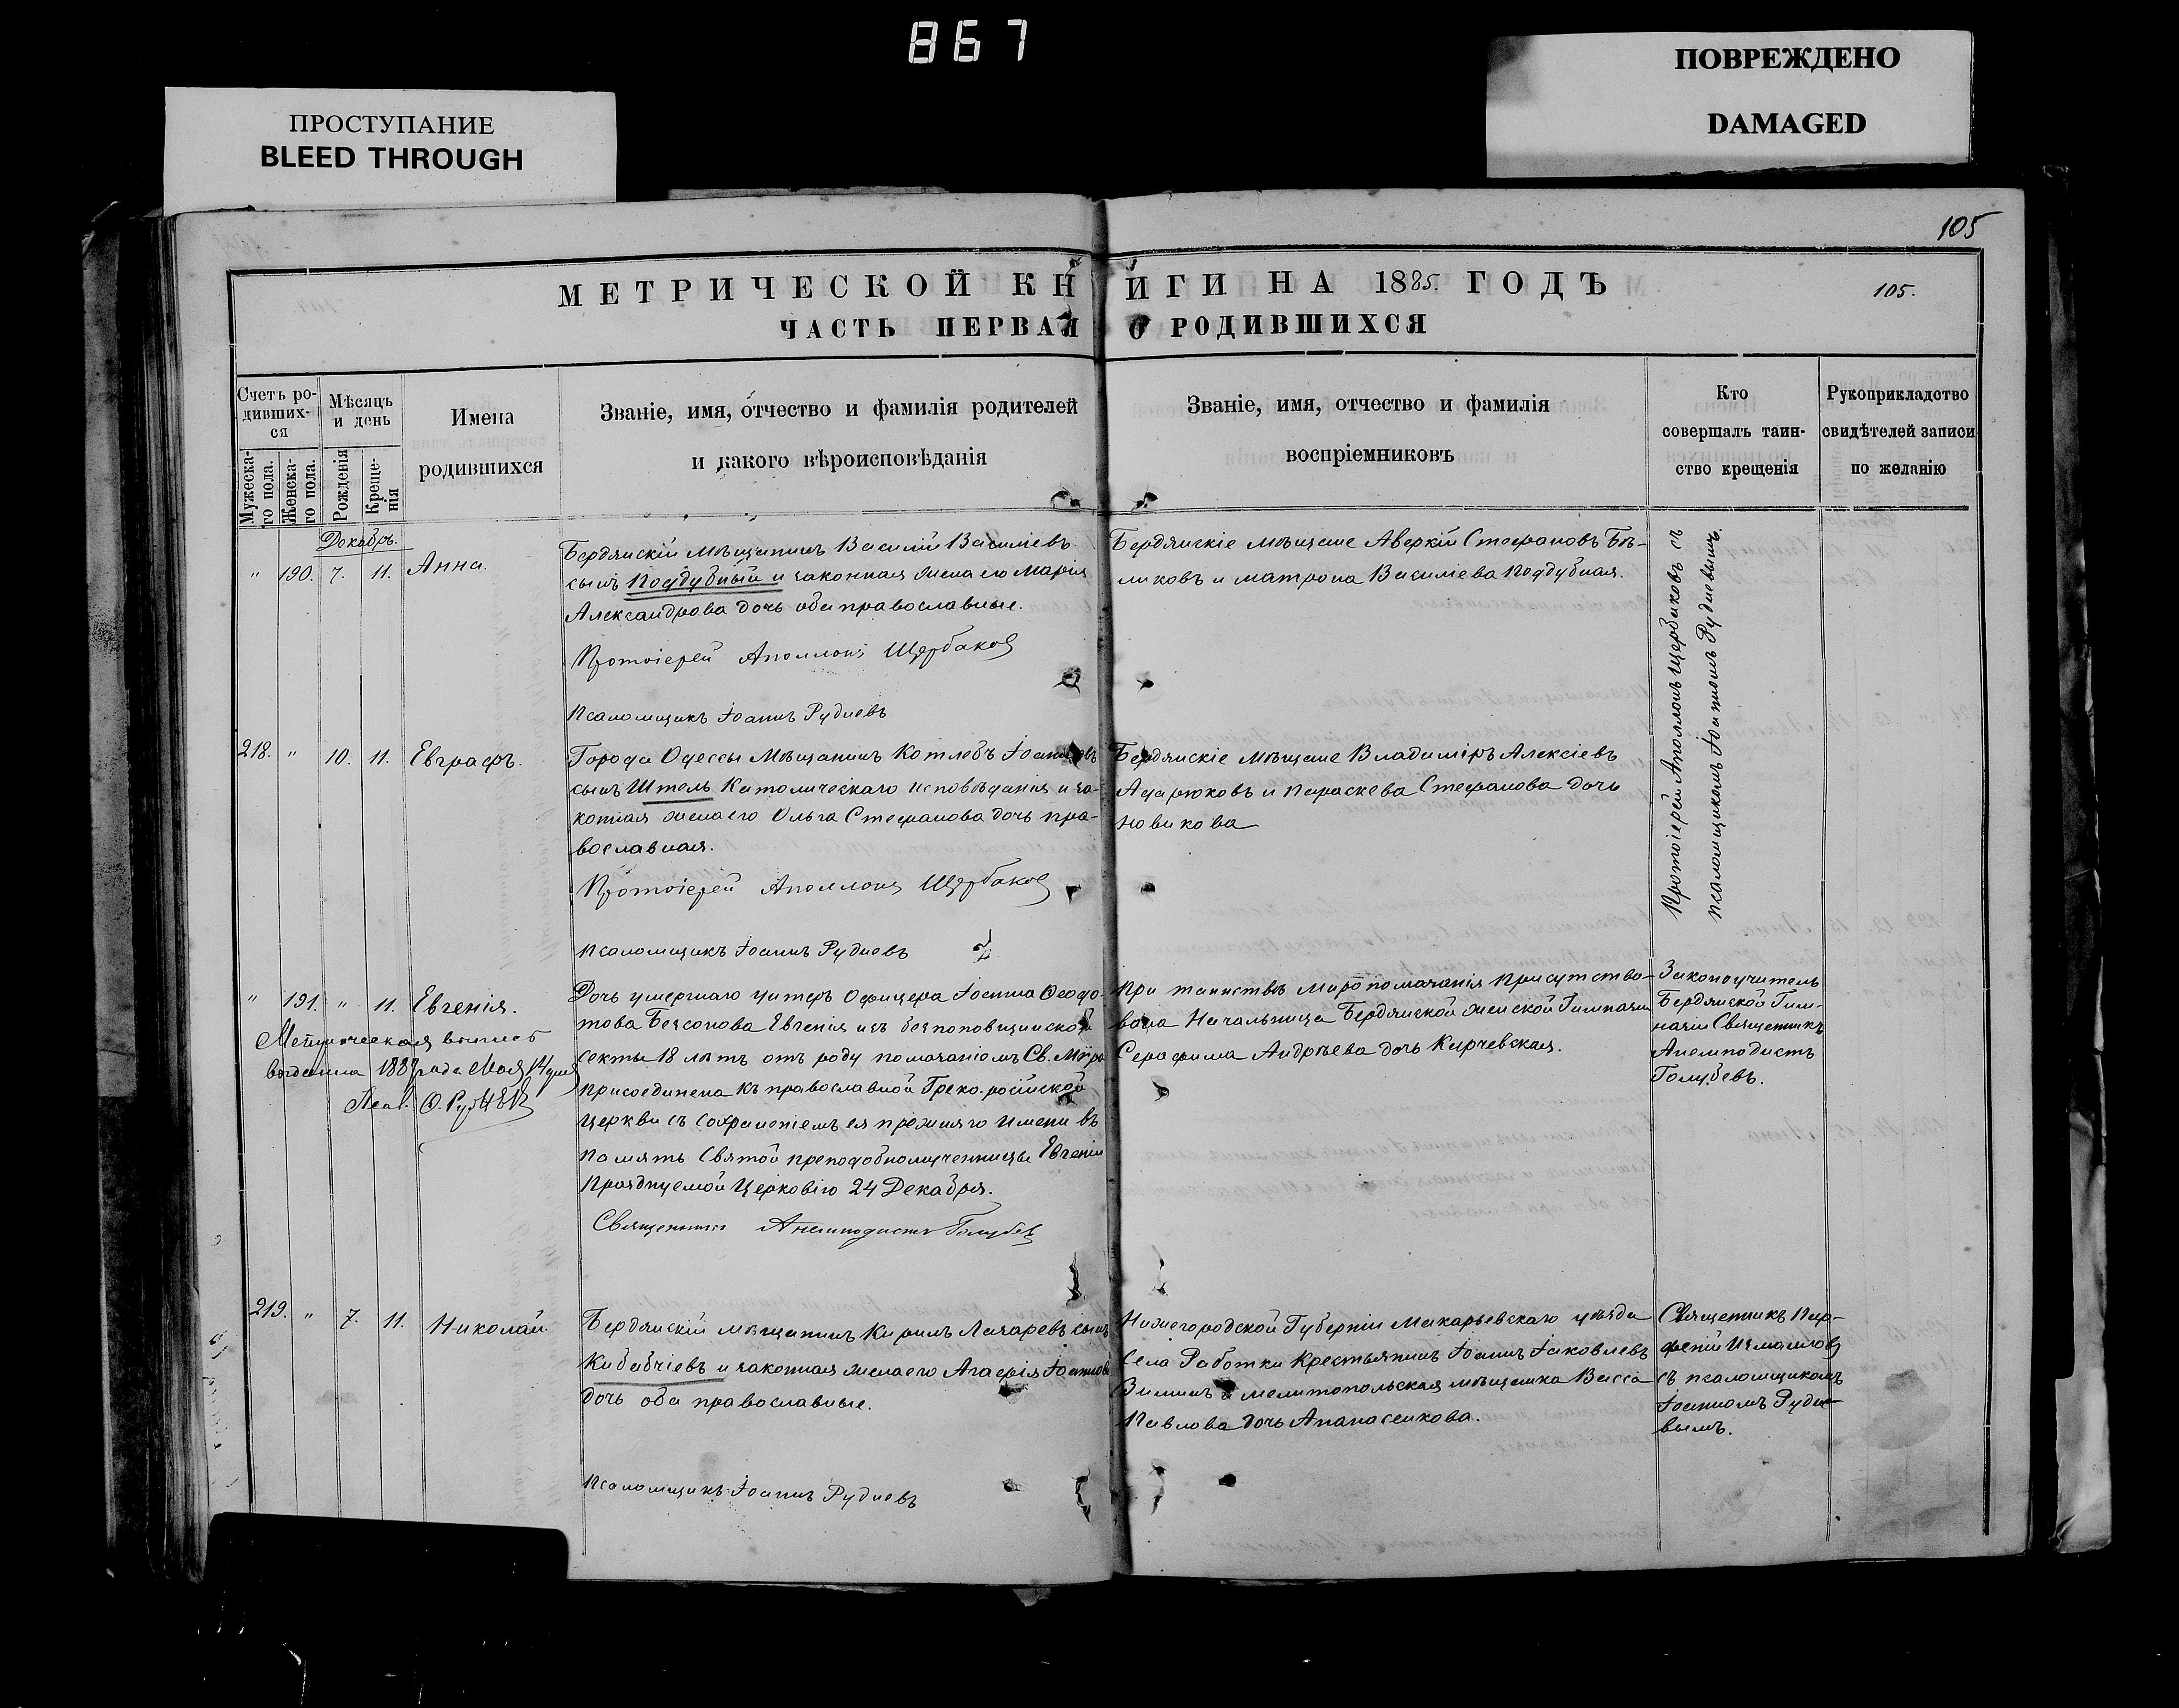 867
ПРОСТУПАНИЕ
BLEED THROUGH
ПОВРЕЖДЕНО
DAMAGED
105
МЕТРИЧЕСКОЙ КНИГИ НА 1885. ГОДЪ
105.
ЧАСТЬ ПЕРВАЯ О РОДИВШИХСЯ
Счетъ ро-
дивших-
ся
Мужеска-
го пола.
Женска-
го пола.
Мѣсяцъ
и день
Рожденія
Креще-
нія
Имена
родившихся
Званіе, имя, отчество и фамилія родителей
и какого вѣроисповѣданія
Званіе, имя, отчество и фамилія
воспріемниковъ
Кто
совершалъ таин-
ство крещенія
Рукоприкладство
свидѣтелей записи
по желанію
Декабрь.
" 190. 7. 11. Анна.
Бердянскій мѣщанинъ Василій Василіевъ
сынъ Поддубный и законная жена его Марія
Александрова дочь оба православные.
Протоіерей Аполлонъ Щербаковъ
Псаломщикъ Іоаннъ Рудневъ
Бердянскіе мѣщане Аверкій Стефановъ Бѣ-
ликовъ и Матрона Василіева Поддубная.
Протоіерей Аполлонъ Щербаковъ съ
псаломщикомъ Іоанномъ Рудневымъ.
218. " 10. 11. Евграфъ.
Города Одессы мѣщанинъ Котлебъ Іоанновъ
сынъ Штель Католическаго исповѣданія и за-
конная жена его Ольга Стефанова дочь пра-
вославная.
Протоіерей Аполлонъ Щербаковъ
Псаломщикъ Іоаннъ Рудневъ
Бердянскіе мѣщане Владиміръ Алексіевъ
Адарюковъ и Параскева Стефанова дочь
Новикова
" 191. " 11. Евгенія.
Метрическая
выдана 1887 года Мая 14 дня
Псал. І. Рудневъ
Дочь умершаго унтеръ офицера Іоанна Ѳеодо-
това Безсонова Евгенія изъ безпоповщинской
секты 18 лѣтъ отъ роду помазаніемъ Св. Мѵра
присоединена къ православной Греко-россійской
Церкви съ сохраненіемъ ея прежняго имени въ
память Святой преподобномученницы Евгеніи
празднуемой Церковію 24 Декабря.
Священникъ Анемподистъ Голубевъ
При таинствѣ мѵропомазанія присутство-
вала Начальница Бердянской женской Гимназіи
Серафима Андрѣева дочь Кирчевская.
Законоучитель
Бердянской Гим-
назіи Священникъ
Анемподистъ
Голубевъ.
219. " 7. 11. Николай.
Бердянскій мѣщанинъ Кирилъ Лазаревъ сынъ
Кибабчіевъ и законная жена его Агафія Іоаннова
дочь оба православные.
Псаломщикъ Іоаннъ Рудневъ
Нижегородской Губерніи Макарьевскаго уѣзда
села Работки крестьянинъ Іоаннъ Іаковлевъ
Зиминъ и мелитопольская мѣщанка Васса
Павлова дочь Апанасенкова.
Священникъ Пар-
феній Измаиловъ
съ псаломщикомъ
Іоанномъ Рудне-
вымъ.